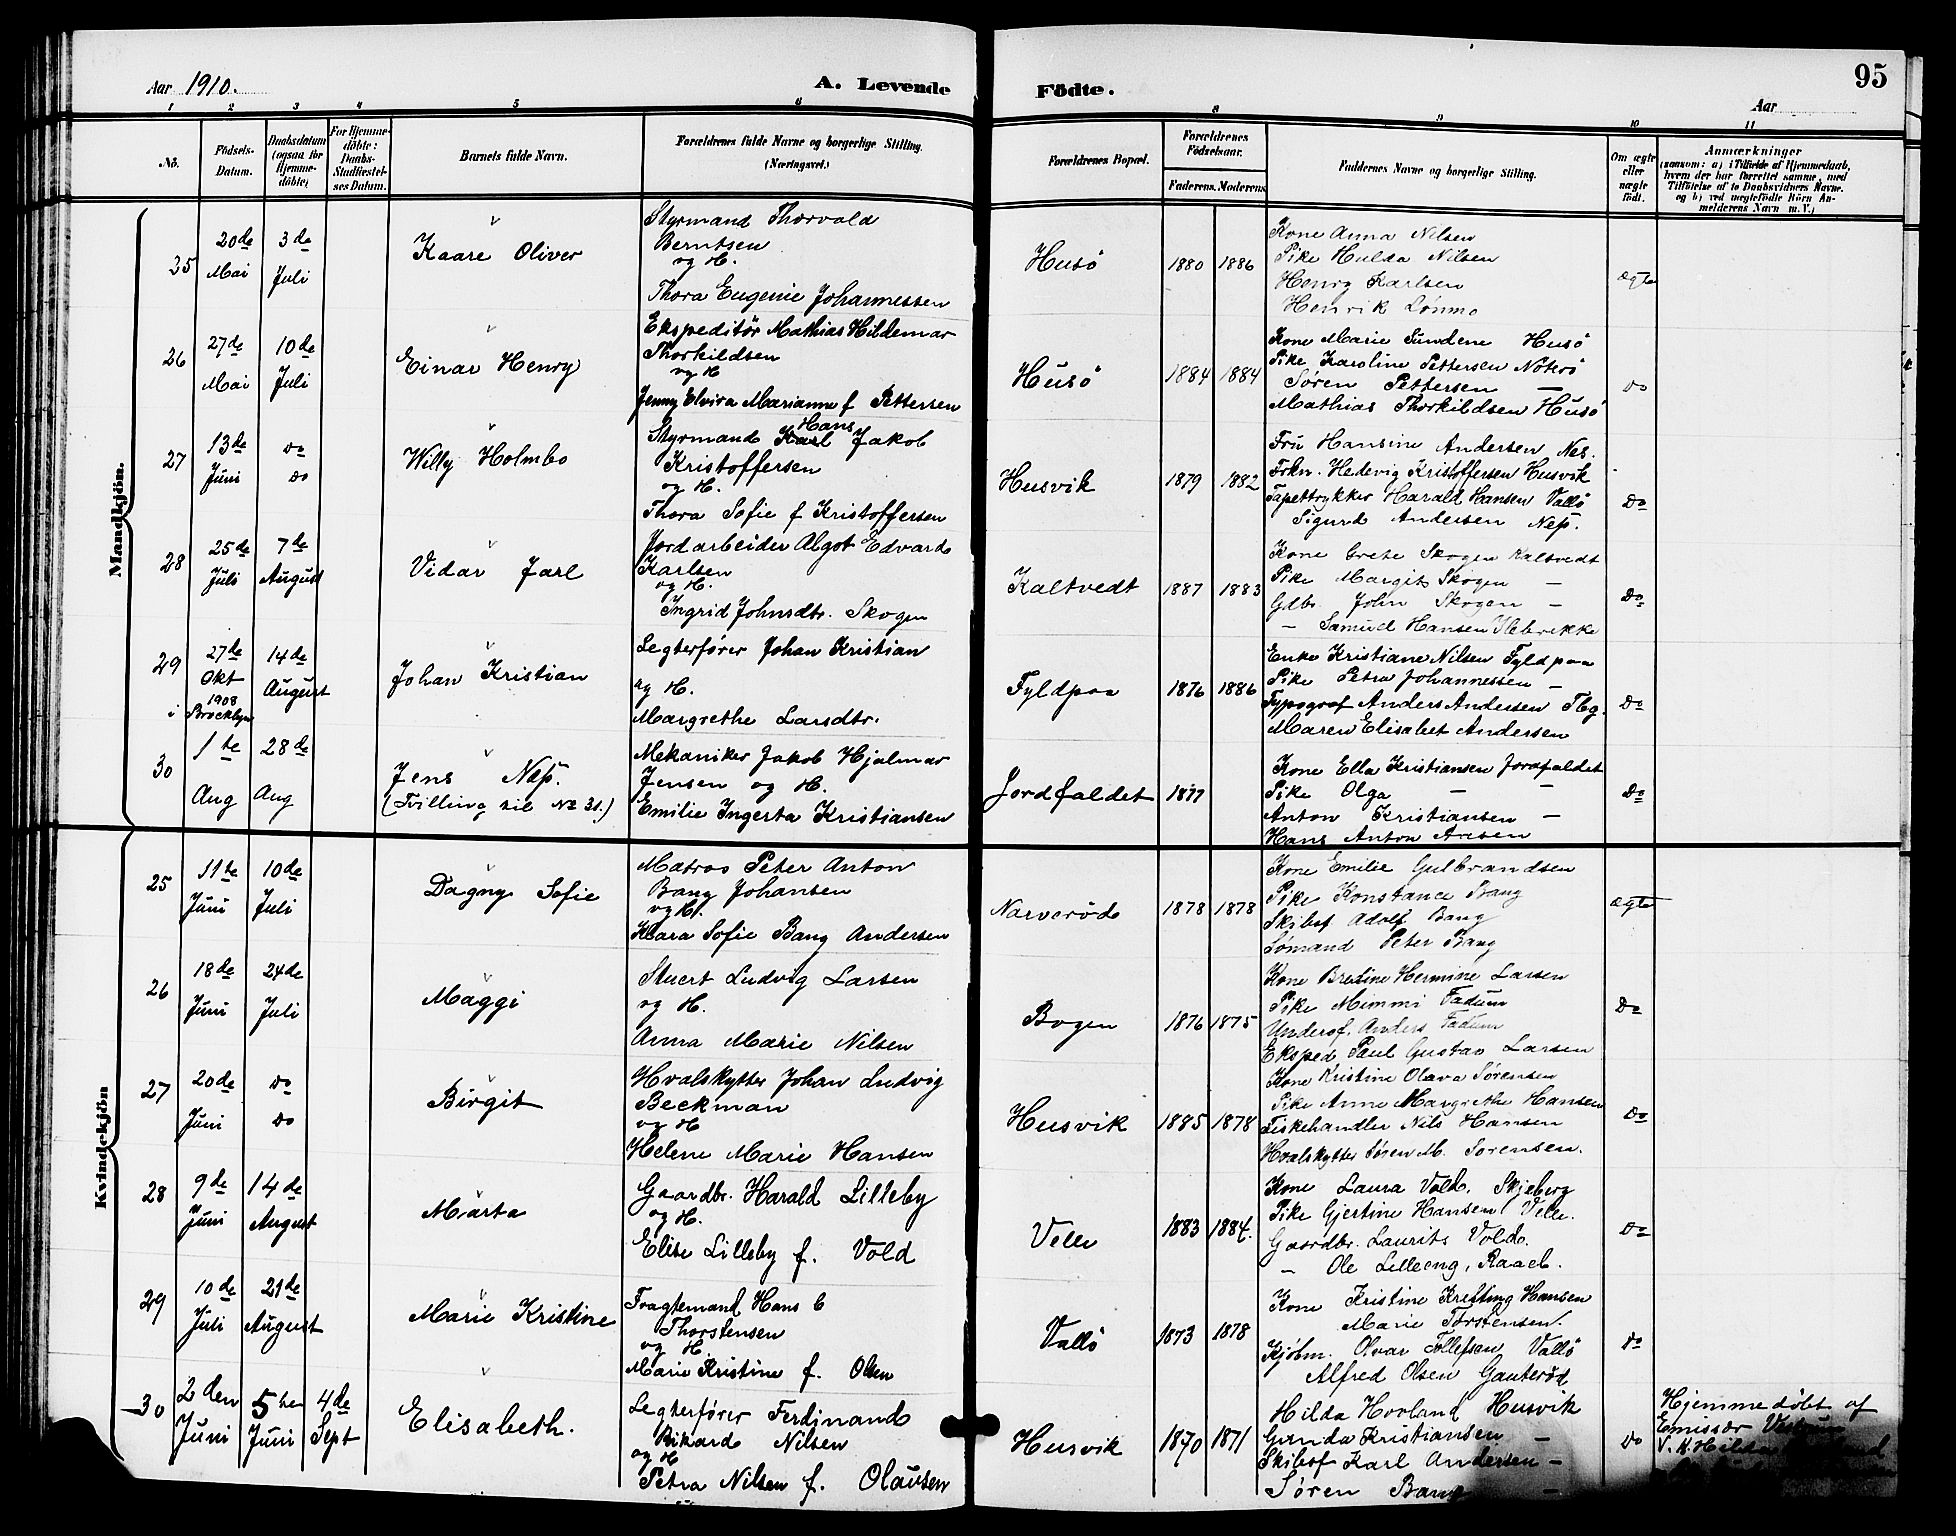 Aar 1910.
A. Levende Födte.
Aar
95
1 2 3 4 5 6 8 9 10 11
No.
Födsels-Datum.
Daabsdatum (ogsaa for Hjemme-döbte)
For Hjemme-döbte: Daabs-Stadfæstel-ses Datum.
Barnets fulde Navn.
Forældrenes fulde Navne og borgerlige Stilling. (Næringsvei.)
Forældrenes Bopæl.
Forældrenes Födselsaar.
Faderens. Moderens.
Faddernes Navne og borgerlige Stilling.
Om ægte eller uægte födt.
Anmærkninger
(saasom: a) i Tilfælde af Hjemmedaab, hvem der har forrettet samme, med Tilföielse af to Daabsvidners Navne. og b) ved uægtefödte Börn An-melderens Navn m. V.)
Mandkjön.
25 20de Mai 3de Juli
Kaare Oliver
Styrmand Thorvald
Berntsen
og H.
Thora Eugenie Johannessen
Husö 1880 1886
Kone Anna Nilsen
Pike Hulda Nilsen
Henry Karlsen
Henrik Lönmo
ægte
26 27de Mai 10de Juli
Einar Henry
Ekspeditör Mathias Hildemar
Thorkildsen
og H
Jenny Elvira Marianne f Pettersen
Husö 1884 1884
Kone Marie Sundene Husö
Pike Karoline Pettersen Nöterö
Sören Pettersen —
Mathias Thorkildsen Husö
Do
27 13de Juni Do Do
Willy Holmbo
Hans
Styrmand Karl Jakob
Kristoffersen
og H.
Thora Sofie f Kristoffersen
Husvik 1879 1882
Fru Hansine Andersen Nes.
Frkn. Hedevig Kristoffersen Husvik
Tapettrykker Harald Hansen Vallö
Sigurd Andersen Nes.
Do
28 25de Juli 7de August
Vidar Jarl
Jordarbeider Algot Edvard
Karlsen
og H.
Ingrid Johnsdtr. Skogen
Kaltvedt 1887 1883
Kone Grete Skogen Kaltvedt
Pike Margit Skogen —
Gdbr. John Skogen —
— Samuel Hansen Ilebrekke
Do
29 27de Okt 1908 i Brocklyn 14de August
Johan Kristian
Legterförer Johan Kristian
og H.
Margrethe Larsdtr.
Fyldpaa 1876 1886
Enke Kristiane Nilsen Fyldpaa
Pike Petra Johannessen —
Typograf Anders Andersen Tbg.
Maren Elisabet Andersen
Do
30 1te Aug 28de Aug
Jens Næss.
(Tvilling til No 31.)
Mekaniker Jakob Hjalmar
Jensen og H.
Emilie Ingerta Kristiansen
Jordfaldet 1877
Kone Ella Kristiansen Jordfaldet
Pike Olga — —
Anton Kristiansen —
Hans Anton Aasen
Do
Kvindekjön
25 11te Juni 10de Juli
Dagny Sofie
Matros Peter Anton
Bang Johansen
og H.
Klara Sofie Bang Andersen
Narveröd 1878 1878
Kone Emilie Gulbrandsen
Pike Konstance Bang
Skibsf Adolf Bang
Sömand Peter Bang
ægte
26 18de Juni 24de Juli
Maggi
Stuert Ludvig Larsen
og H.
Anna Marie Nilsen
Bogen 1876 1875
Kone Bretine Hermine Larsen
Pike Mimmi Fadum
Undersf. Anders Fadum
Eksped Paul Gustav Larsen
Do
27 20de Juni Do Do
Birgit
Hvalskytter Johan Ludvig
Beckman
og H
Helene Marie Hansen
Husvik 1885 1878
Kone Kristine Olava Sörensen
Pike Anne Margrethe Hansen
Fiskehandler Nils Hansen
Hvalskytter Sören M. Sörensen.
Do
28 9de Juni 14de August
Märta
Gaardbr. Harald Lilleby
og H.
Elise Lilleby f. Vold
Velle 1883 1884.
Kone Laura Vold. Skjeberg
Pike Gjertine Hansen Velle.
Gaardbr. Laurits Vold.
— Ole Lilleeng, Raael.
Do
29 10de Juli 21de August
Marie Kristine
Fragtemand Hans C
Thorstensen
og H.
Marie Kristine f. Olsen
Vallö 1873 1878
Kone Kristine Kretting Hansen
Marie Torstensen.
Kjöbm. Olvar Tollefsen Vallö
Alfred Olsen Gauteröd
Do
30 2den Juni 5te Juni 4de Sept
Elisabeth.
Legterförer Ferdinand
Rikard Nilsen
og H
Petra Nilsen f. Olausen
Husvik 1870 1871
Hilda Hovland Husvik
Gunda Kristiansen —
Skibsf Karl Andersen —
Sören Bang —
Do
Hjemmedöbt af
Emissær